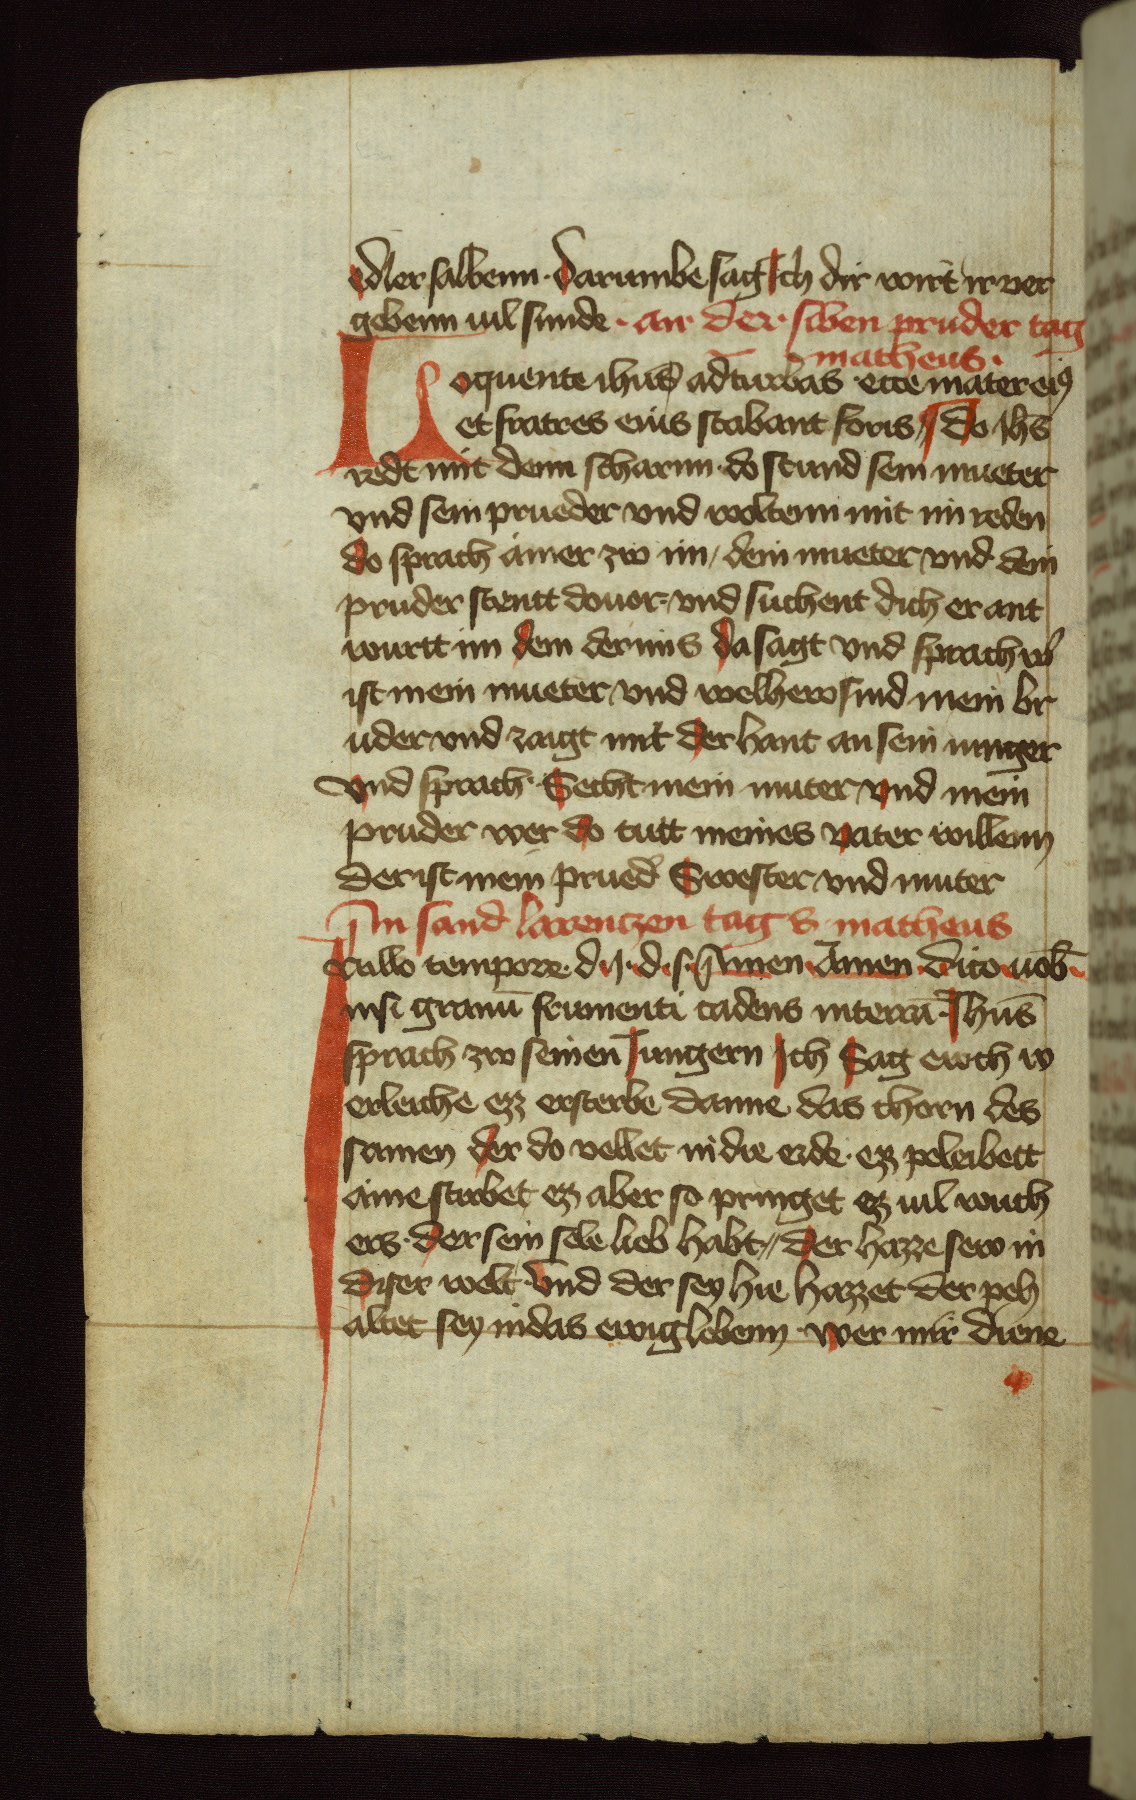 edler salbenn · darumbe sag ich dir wirt ir ver
gebenn uil sunde · an der · siben pruder tag
matheus ·
Loquente ihūs ad turbas ecce mater eiꝰ
et fratres eius stabant foris // do ihs̄
redt mit denn scharnn · do stund sein mueter
vnd sein prueder vnd woltenn mit im reden
do sprach ainer zw im / dein mueter vnd dein
pruder stentt dovor / vnd suchent dich er ant
wurtt im dem der ims da sagt vnd sprach w
ist mein mueter vnd welhew sind mein br
uder vnd zaigt mit der hant an sein iunger
vnd sprach · Secht mein muter vnd mein
pruder wer do tutt meines vater willenn
der ist mein prued Swester vnd muter
An sand larentzen tag S matheus
In illo tempore · d · ij · d · s · Amen Amen dico uob̄
nisi granū frumenti cadens in terrā · Ihūs
sprach zw seinen iungern ich Sag ewch w
erleiche ez ersterbe danne das chorn des
samen der do vellet in die erde · ez peleibett
aine sturbet ez aber so pringet ez uil wuch
ers · der sein sele lieb habt // der hazze sew in
diser welt · vnd der sey hie hazzet der peh
altet sey in das ewig lebenn · wer mir diene